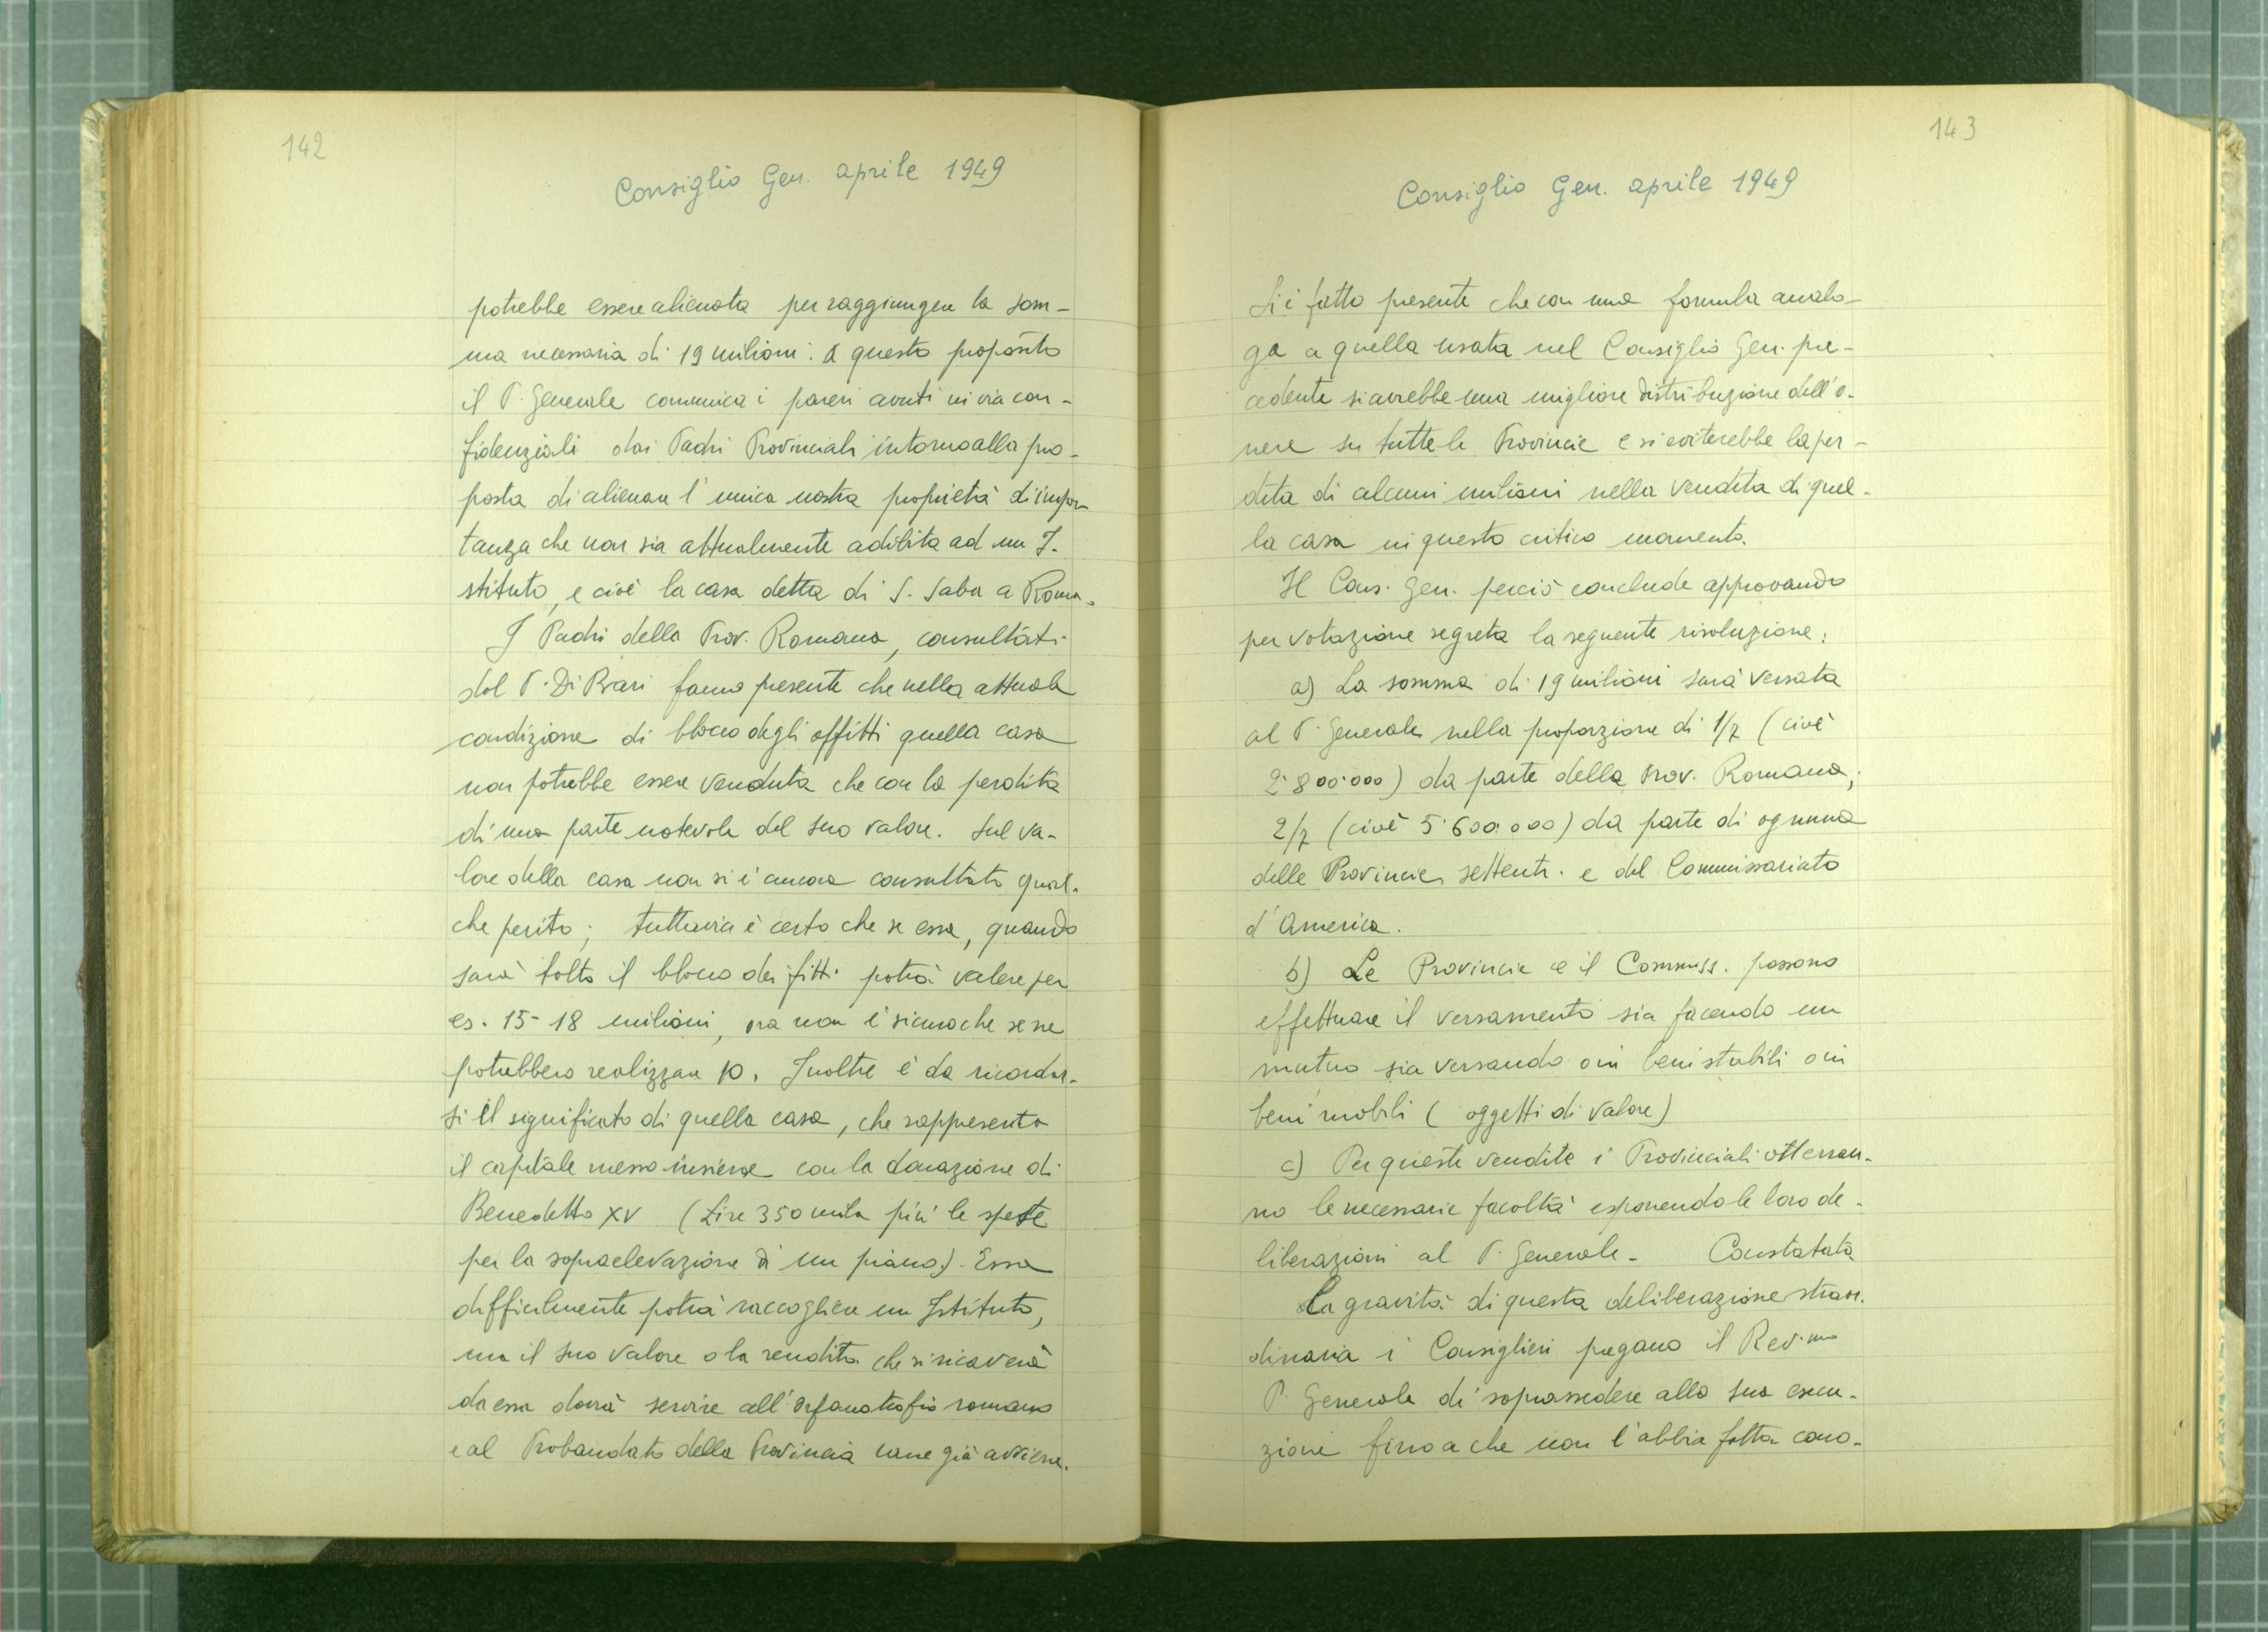 142
Consiglio Gen. aprile 1949
potrebbe essere alienata per raggiungere la som-
ma necessaria di 19 milioni. A questo proposito
il P. Generale comunica i pareri avuti in via con-
fidenziali dai Padri Provinciali intorno alla pro-
posta di alienare l'unica nostra proprietà di impor-
tanza che non sia attualmente adibita ad un I-
stituto, e cioè la casa detta di S. Saba a Roma.
I Padri della Prov. Romana, consultati
dal P. Di Bari fanno presente che nella attuale
condizione di blocco degli affitti quella casa
non potrebbe essere venduta che con la perdita
di una parte notevole del suo valore. Sul va-
lore della casa non si è ancora consultato qual-
che perito; tuttavia è certo che se essa, quando
sarà tolto il blocco dei fitti potrà valere per
es. 15-18 milioni, ora non è sicuro che se ne
potrebbero realizzare 10. Inoltre è da ricordar-
si il significato di quella casa, che rappresenta
il capitale messo insieme con la donazione di
Benedetto XV (Lire 350 mila più le spese
per la sopraelevazione di un piano). Essa
difficilmente potrà raccogliere un Istituto,
ma il suo valore o la rendita che si ricaverà
da essa dovrà servire all'orfanotrofio romano
e al Probandato della Provincia come già avviene.
143
Consiglio Gen. aprile 1949
Si è fatto presente che con una formula analo-
ga a quella usata nel Consiglio Gen. pre-
cedente si avrebbe una migliore distribuzione dell'o-
nere su tutte le Provincie e si eviterebbe la per-
dita di alcuni milioni nella vendita di quel-
la casa in questo critico momento.
Il Cons. Gen. perciò conclude approvando
per votazione segreta la seguente risoluzione:
a) La somma di 19 milioni sarà versata
al P. Generale nella proporzione di 1/7 (cioè
2.800.000) da parte della Prov. Romana;
2/7 (cioè 5.600.000) da parte di ognuna
delle Provincie settentr. e del Commissariato
d'America.
b) Le Provincie e il Commiss. possono
effettuare il versamento sia facendo un
mutuo sia versando o in beni stabili o in
beni mobili (oggetti di valore)
c) Per queste vendite i Provinciali otterran-
no le necessarie facoltà esponendo le loro de-
liberazioni al P. Generale. Constatata
la gravità di questa deliberazione straor.
dinaria i Consiglieri pregano il Rev.mo
P. Generale di soprassedere alla sua esecu-
zione fino a che non l'abbia fatta cono-